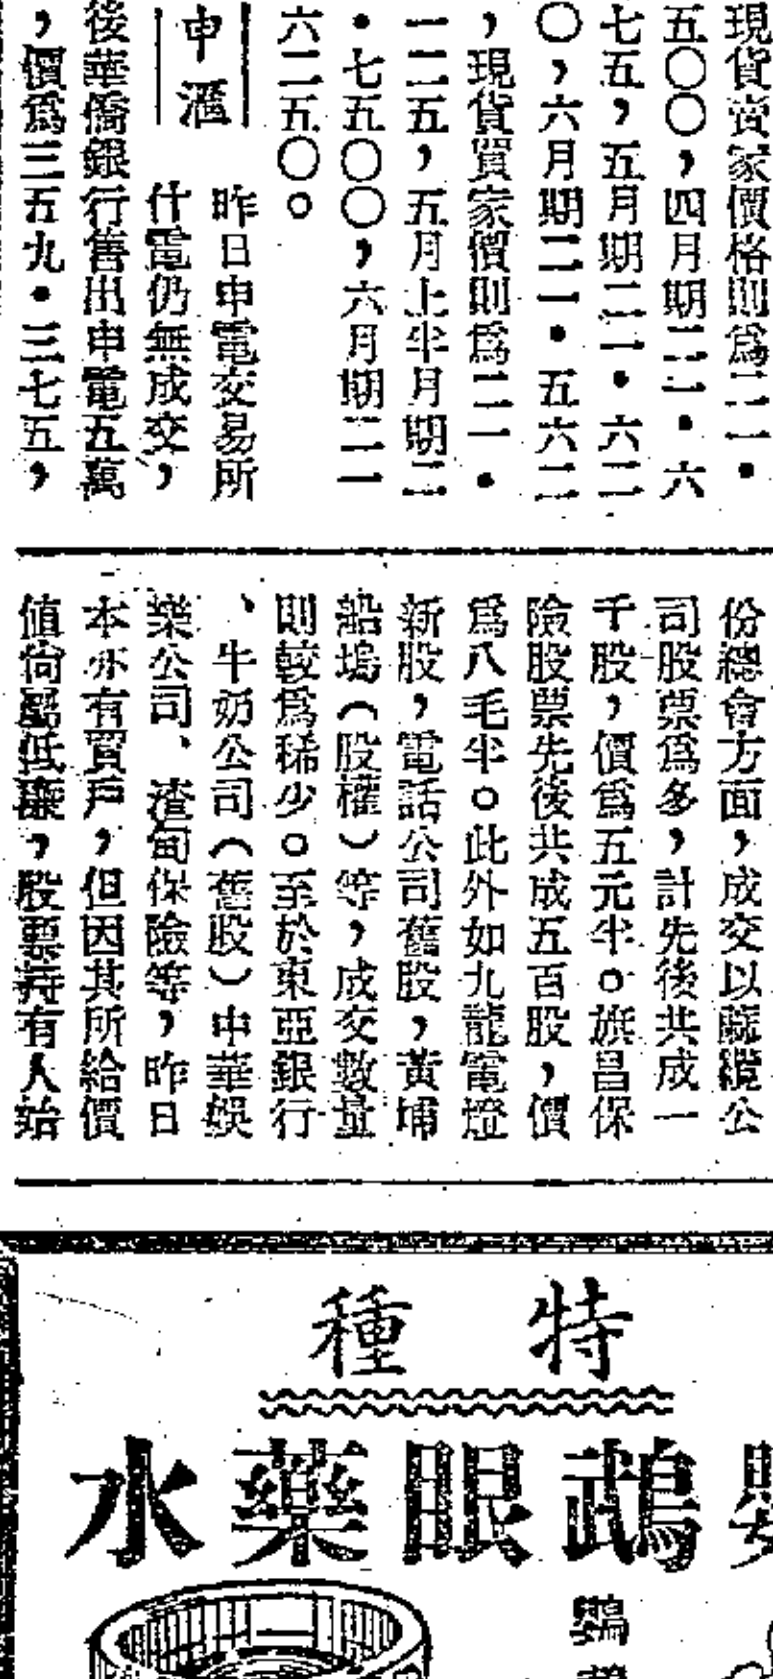 現貨賣家價格則爲二一・
五〇〇，四月期二一・六
七五，五月期二一・六二
〇，六月期二一・五六二
，現貨買家價則爲二一・
一二五，五月上半月期二
・七五〇〇，六月期二一
六二五〇。
申滙
昨日申電交易所
什電仍無成交，
後華僑銀行售出申電五萬
，價爲三五九・三七五，
份總會方面，成交以蔴纜公
司股票爲多，計先後共成一
千股，價爲五元半。旗昌保
險股票先後共成五百股，價
爲八毛半。此外如九龍電燈
新股，電話公司舊股，黃埔
船塢（股權）等，成交數量
則較爲稀少。至於東亞銀行
、牛奶公司（舊股）中華娛
樂公司、渣甸保險等，昨日
本亦有買戶，但因其所給價
値尙屬低廉，股票持有人始
特種
鵡眼藥水
鸚